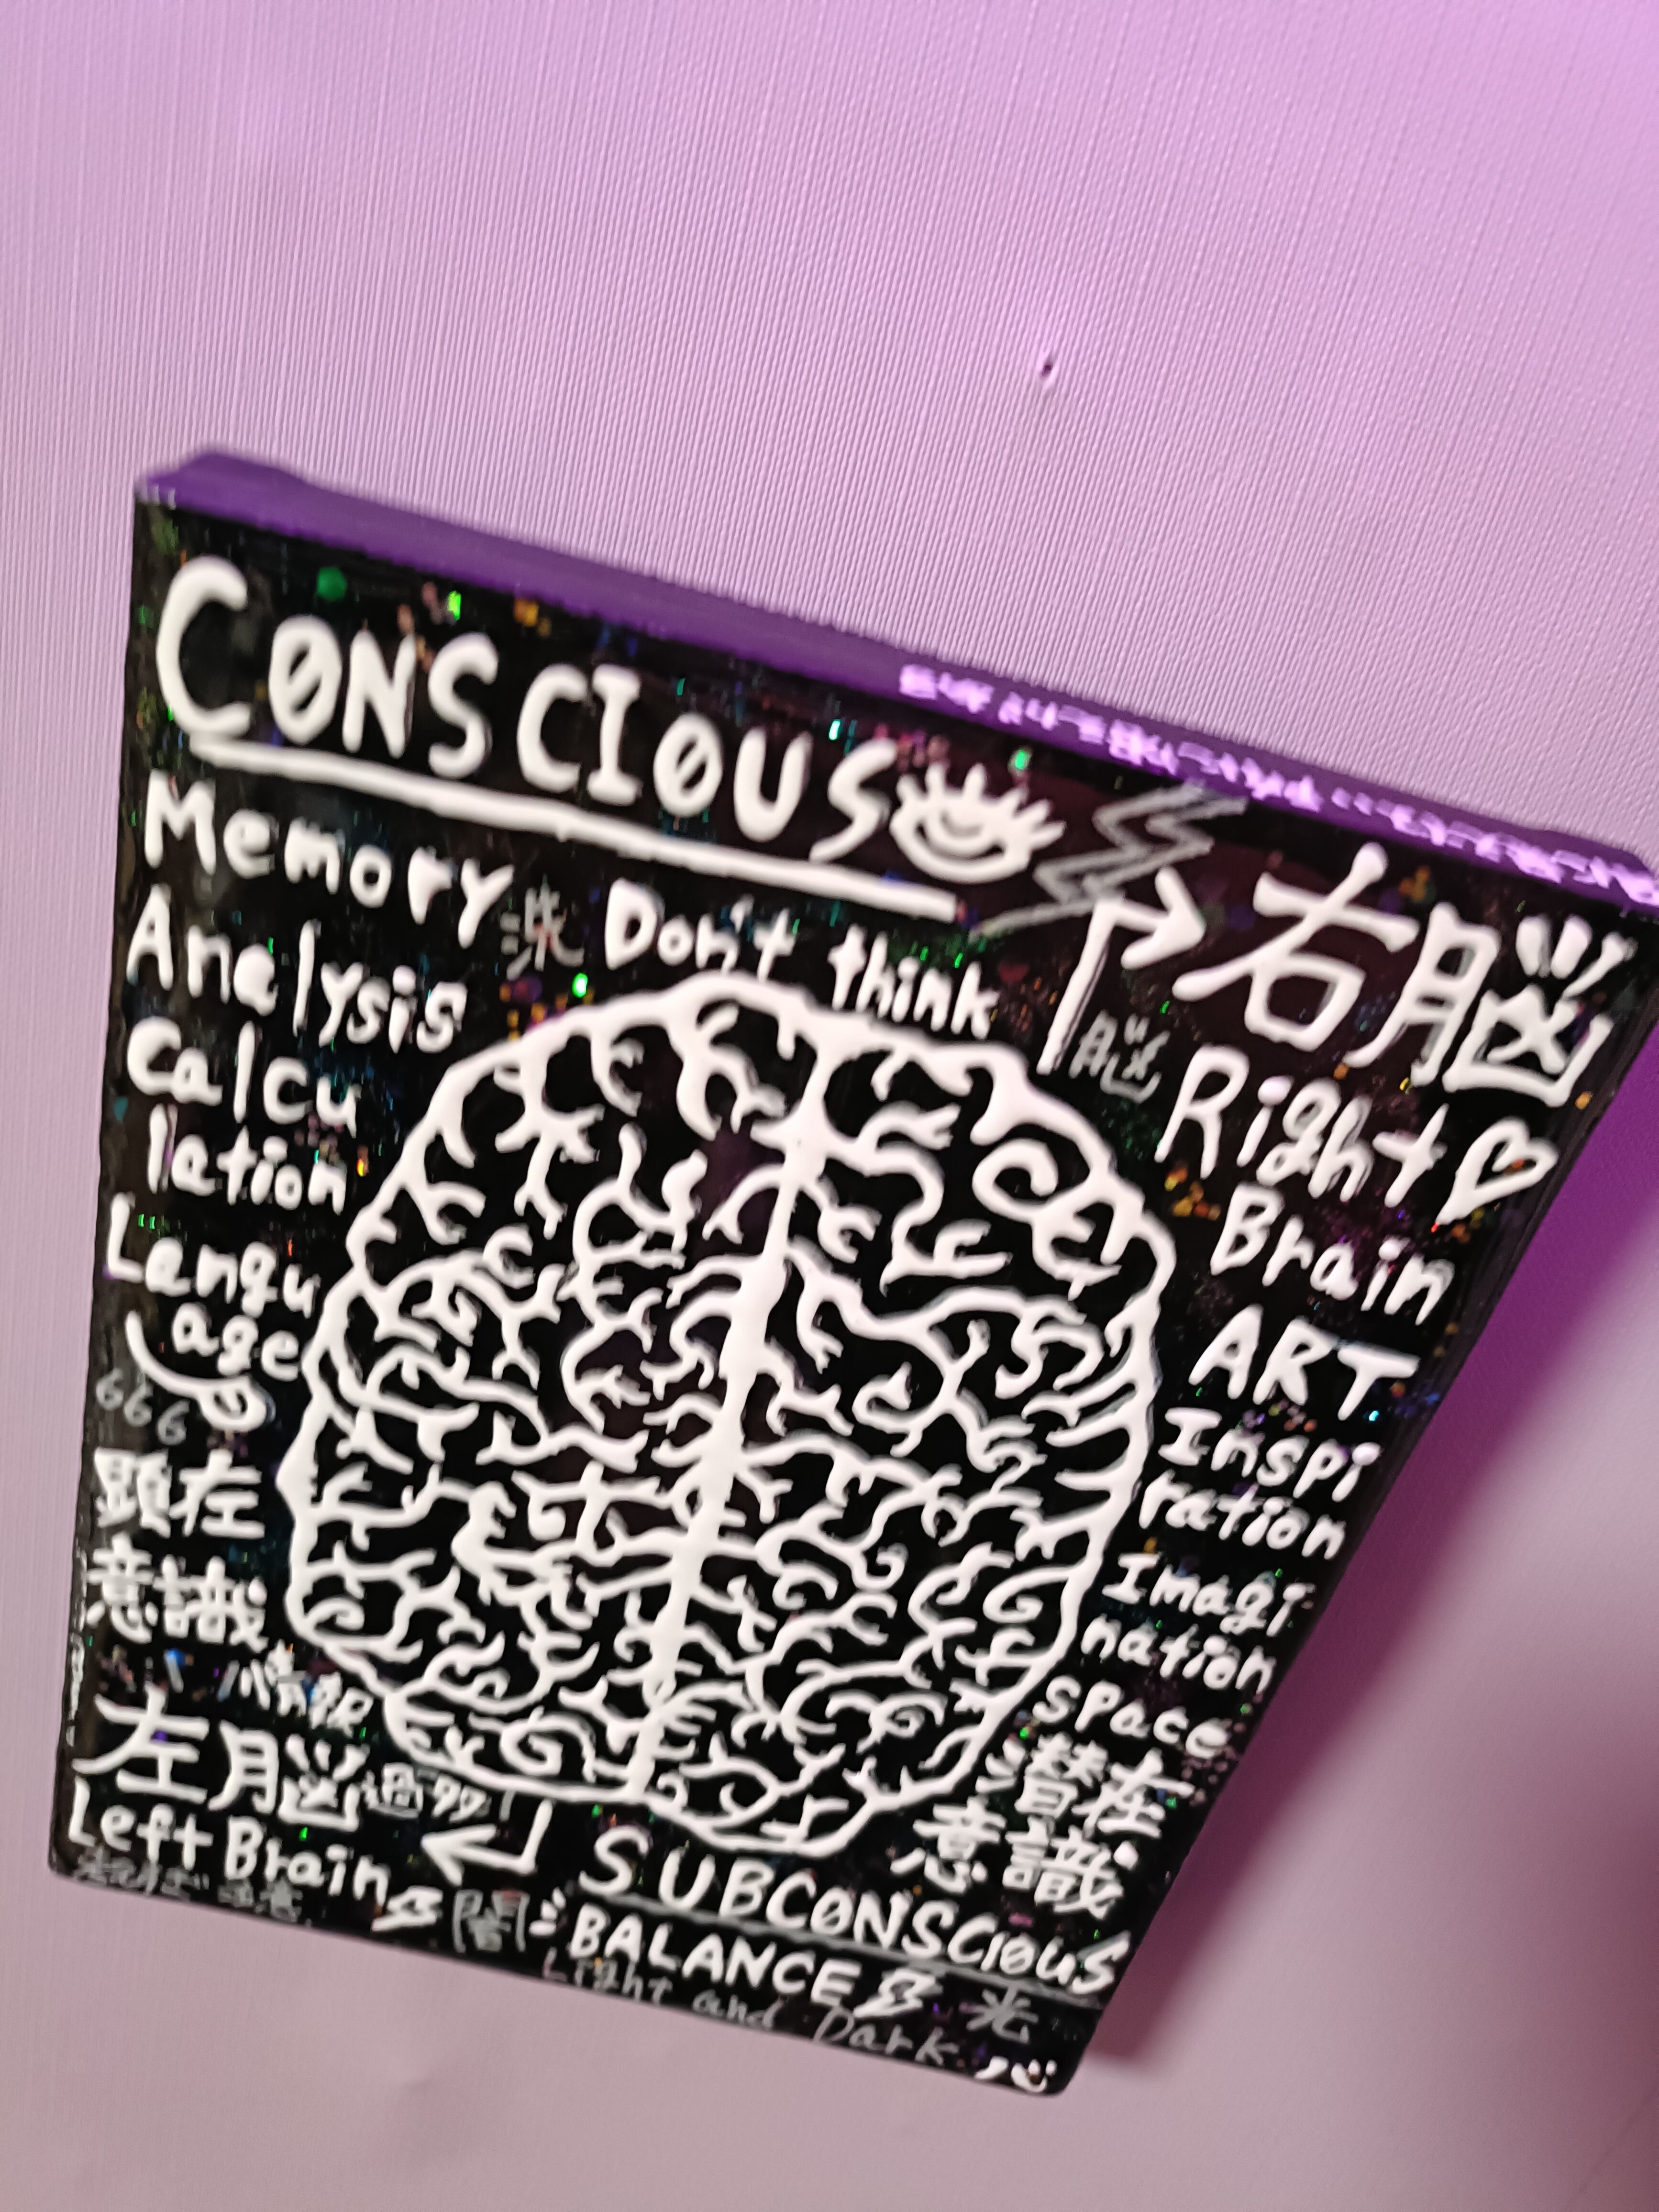 CONSCIOUS
Memory
洗
Don't think
Analysis
Calcu
lation
Langu
age
666
顕在
意識
情報
左脳
過多
Left Brain
右脳
脳
Right
Brain
ART
Inspi
ration
Imagi-
nation
space
潜在
意識
SUBCONSCIOUS
闇
BALANCE
光
Light and Dark
心